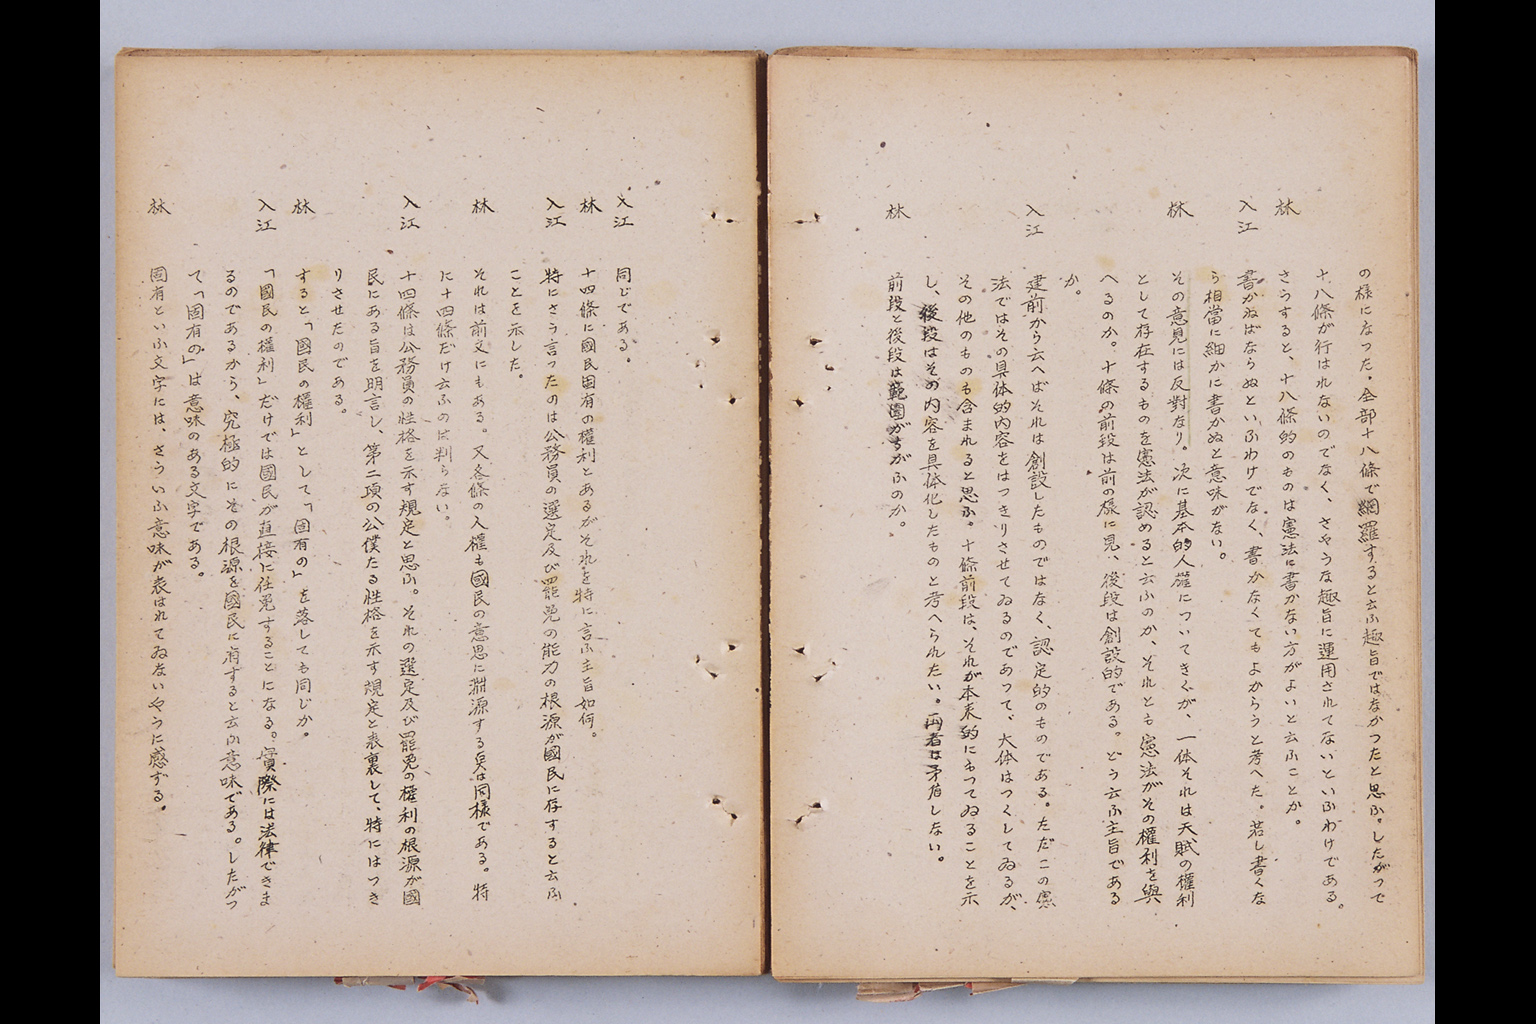 の様になった。全部十八條で網羅すると云ふ趣旨ではなかつたと思ふ。したがつて
十八條が行はれないのでなく、さやうな趣旨に運用されてないといふわけである。
林 さうすると、十八條的のものは憲法に書かない方がよいと云ふことか。
入江 書かねばならぬといふわけでなく、書かなくてもよからうと考へた。若し書くな
ら相當に細かに書かぬと意味がない。
林 その意見には反對なり。次に基本的人權についてきくが、一体それは天賦の權利
として存在するものを憲法が認めると云ふのか、それとも憲法がその權利を與
へるのか。十條の前段は前の樣に見、後段は創設的である。どう云ふ主旨である
か。
入江 建前から云へばそれは創設したものではなく、認定的のものである。ただこの憲
法ではその具体的内容をはつきりさせてゐるのであつて、大体はつくしてゐるが、
その他のものも含まれると思ふ。十條前段は、それが本来的にもつてゐることを示
し、後段はその内容を具体化したものと考へられたい。両者は矛盾しない。
林 前段と後段は範囲がちがふのか。
入江 同じである。
林 十四條に國民固有の權利とあるがそれを特に言ふ主旨如何。
入江 特にさう言つたのは公務員の選定及び罷免の能力の根源が國民に存すると云ふ
ことを示した。
林 それは前文にもある。又各條の人權も國民の意思に淵源する矣は同樣である。特
に十四條だけ云ふのは判らない。
入江 十四條は公務員の性格を示す規定と思ふ。それの選定及び罷免の權利の根源が國
民にある旨を明言し、第二項の公僕たる性格を示す規定と表裏して、特にはつき
りさせたのである。
林 すると「國民の權利」として「固有の」を落しても同じか。
入江 「國民の權利」だけでは國民が直接に任免することになる。實際には法律できま
るのであるから、究極的にその根源を國民に有すると云ふ意味である。したがつ
て「固有の」は意味のある文字である。
林 固有といふ文字には、さういふ意味が表はれてゐないやうに感ずる。